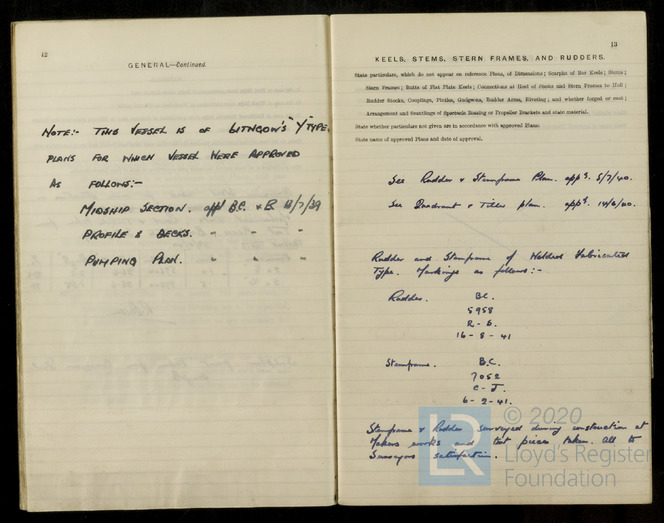 12
GENERAL—Continued.
NOTE:- THIS VESSEL IS OF LITHGOW'S "Y" TYPE
PLANS FOR WHICH VESSEL WERE APPROVED
AS FOLLOWS:-
MIDSHIP SECTION. appd B.C. & B /7/39
PROFILE & DECKS. " " "
PUMPING PLAN. " " "
13
KEELS, STEMS, STERN FRAMES, AND RUDDERS.
State particulars, which do not appear on reference Plans, of Dimensions; Scarphs of Bar Keels; Stems;
Stern Frames; Butts of Flat Plate Keels; Connections at Heel of Stems and Stern Frames to Hull;
Rudder Stocks, Couplings, Pintles, Gudgeons, Rudder Arms, Riveting; and whether forged or cast;
Arrangement and Scantlings of Spectacle Bossing or Propeller Brackets and state material.
State whether particulars not given are in accordance with approved Plans:
State name of approved Plans and date of approval.
See Rudder & Sternframe Plan. appd. 5/7/40.
See Quadrant & Tiller plan. appd. 14/6/40.
Rudder and Sternframe of Welded Fabricated
Type. Markings as follows:-
Rudder. B.C.
5958
R-S.
16-8-41
Sternframe. B.C.
7052
C-J.
6-2-41.
Sternframe & Rudder surveyed during construction at
Makers works and test pieces taken. all to
Surveyors satisfaction.
LR
© 2020
Lloyd's Register
Foundation